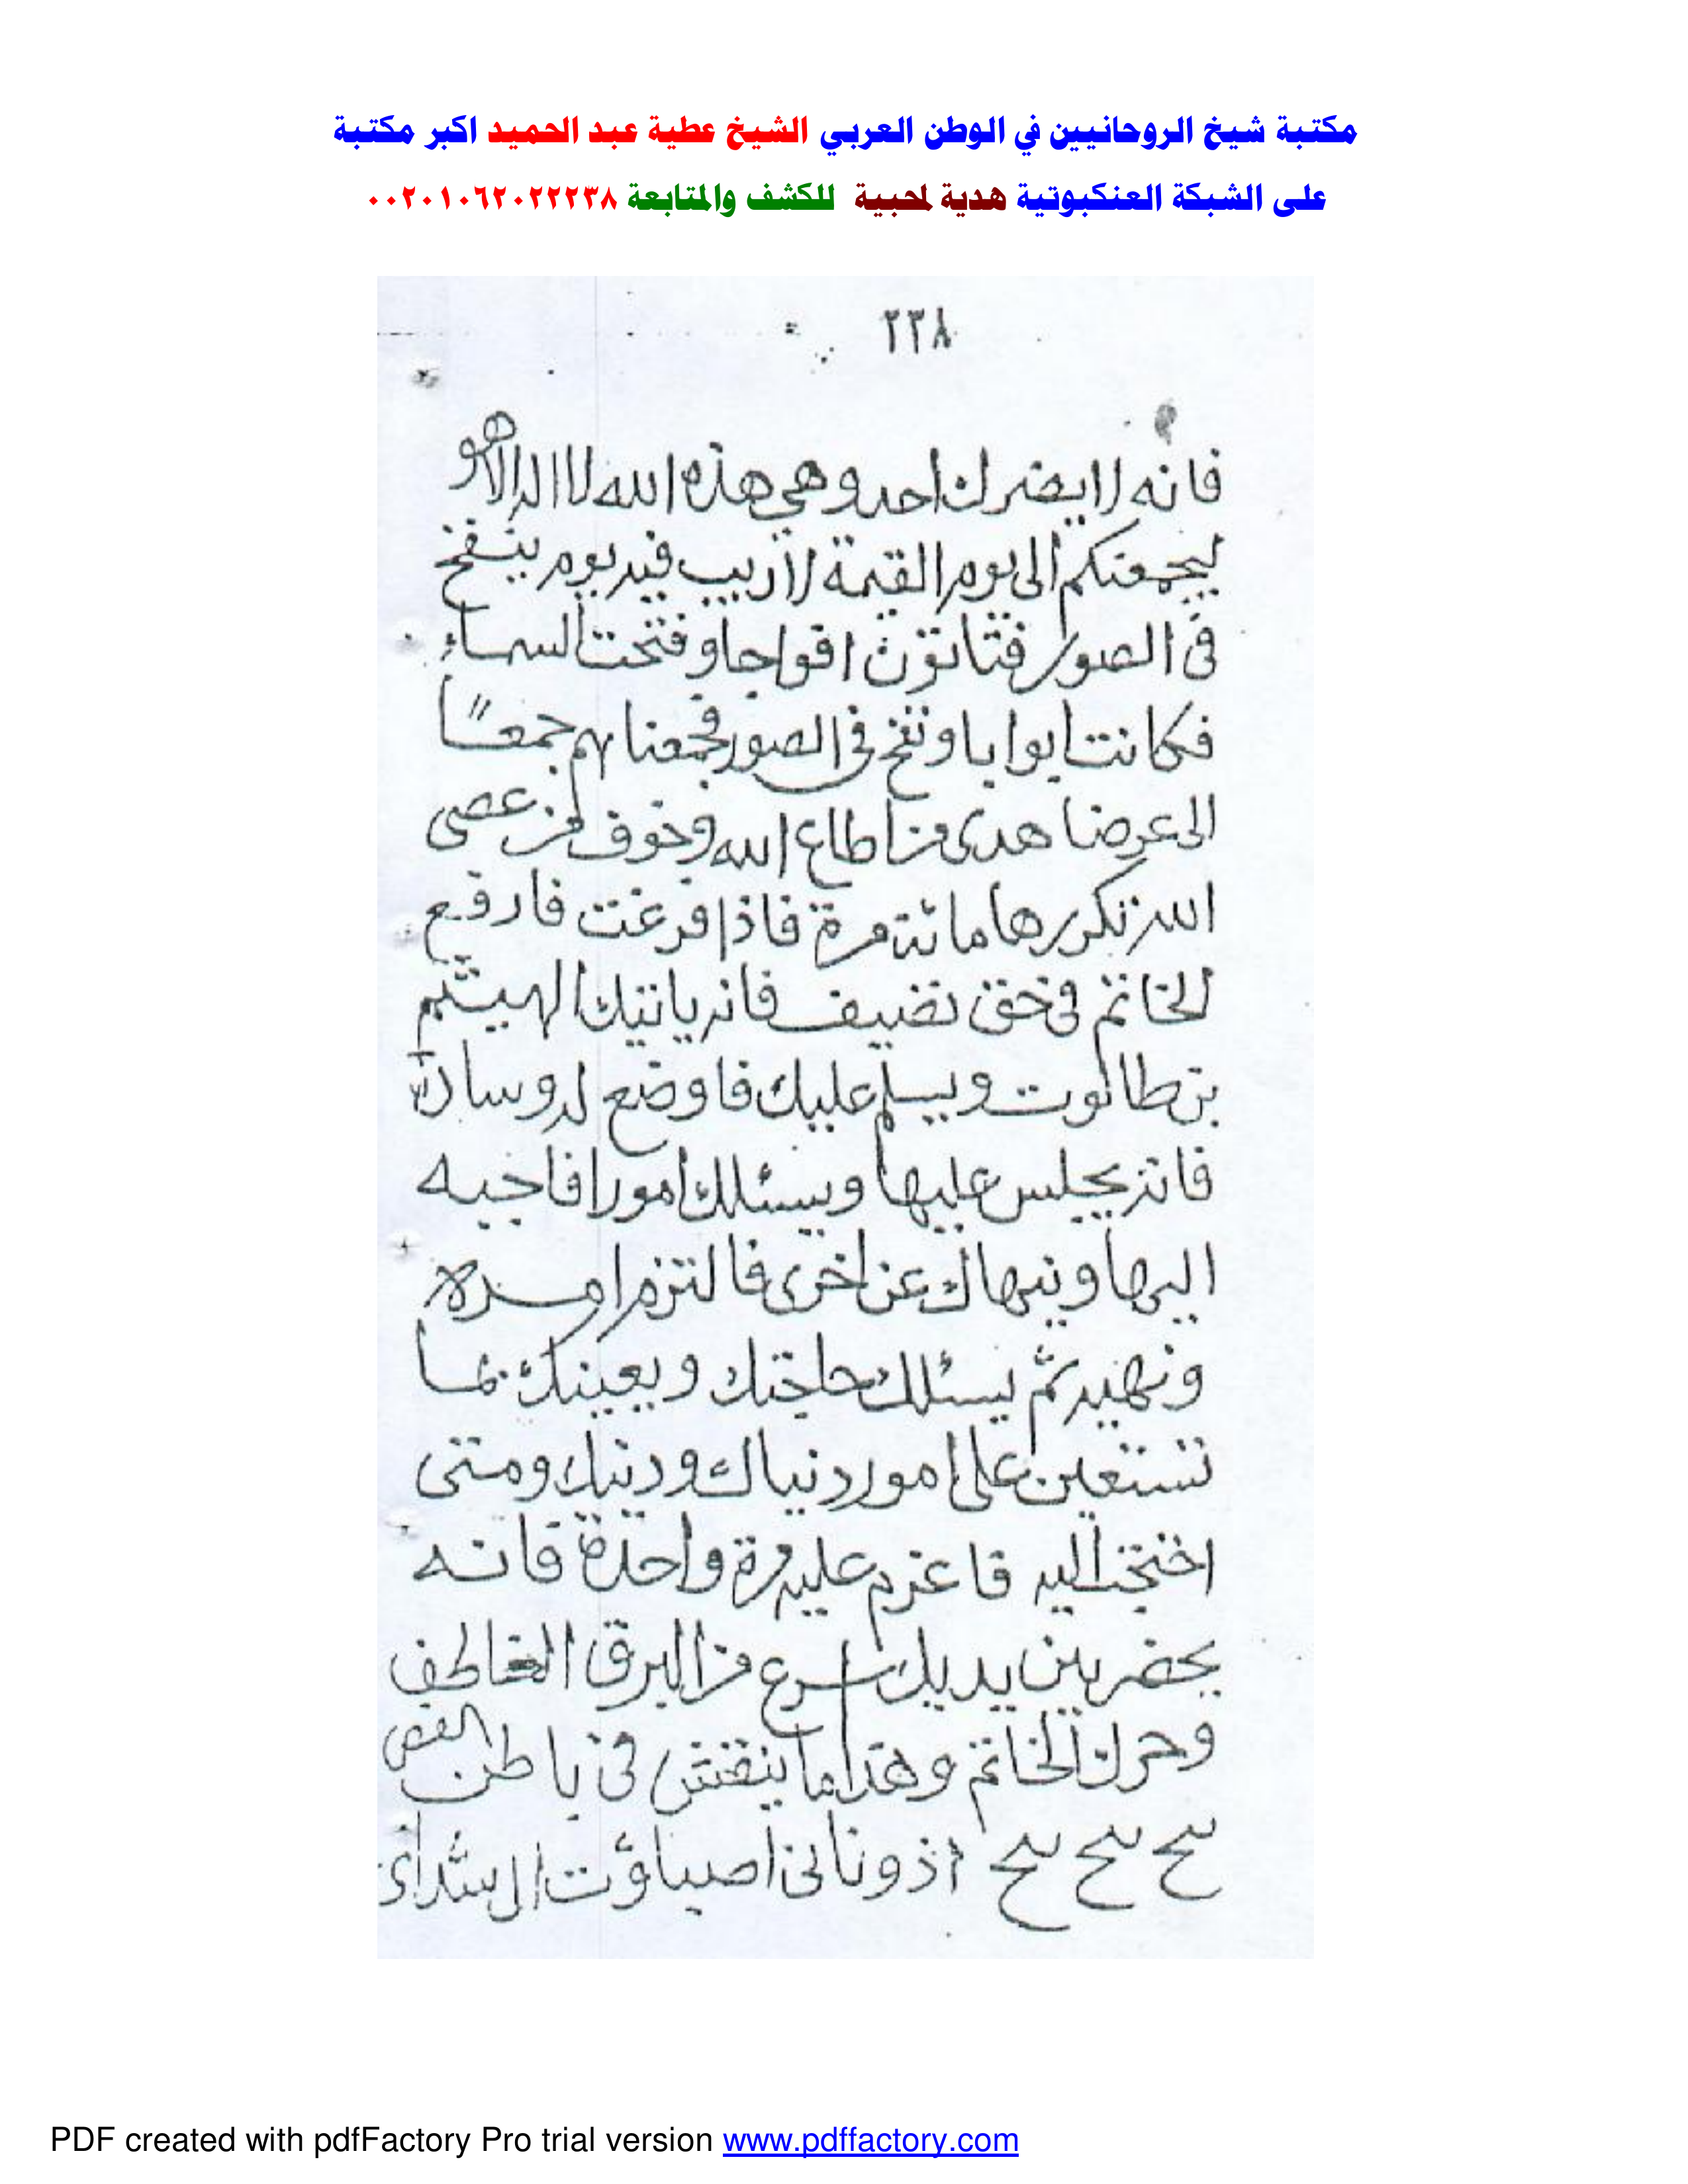 مكتبة شيخ الروحانيين في الوطن العربي الشيخ عطية عبد الحميد اكبر مكتبة
على الشبكة العنكبوتية هدية لمحبية للكشف والمتابعة ٠٠٢٠١٠٦٢٠٢٢٢٣٨
٢٣٨
فانه لا يضرك احد وهي هذه الله لا اله الا هو
ليجمعنكم الى يوم القيمة لا ريب فيه يوم ينفخ
فى الصور فتاتون افواجا وفتحت السماء
فكانت ابوابا ونفخ فى الصور فجمعناهم جمعًا
الى عرضا هدى من اطاع الله وخوف من عصى
الله تكررها مائة مرة فاذا فرغت فارفع
الخاتم فى حق نضيف فانه ياتيك الهيثم
بن طالوت ويسلم عليك فاوضع له وسادة
فانه يجلس عليها ويسئلك امورا فاجبه
اليها وينهاك عن اخرى فالتزم امره
ونهيه ثم يسئلك حاجتك ويعينك بما
تستعين على امور دنياك ودينك ومتى
احتجت اليه فاعزم عليه مرة واحدة فانه
يحضر بين يديك اسرع من البرق الخاطف
وحرك الخاتم وهذا ما ينقش فى باطن الفص
سح سح سح اذونانى اصباؤت ال شداى
PDF created with pdfFactory Pro trial version www.pdffactory.com